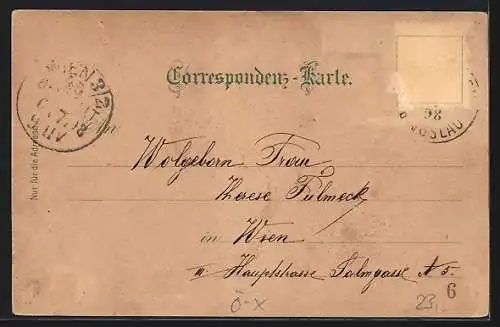 Correspondenz-Karte.
WIEN 3/2
98
VÖSLAU
Nur für die Adresse
An
Wolgeborn Frau
Therese Fülmeck
in Wien
III Hauptstrasse Salmgasse N 5.
6
Ö-X
23,